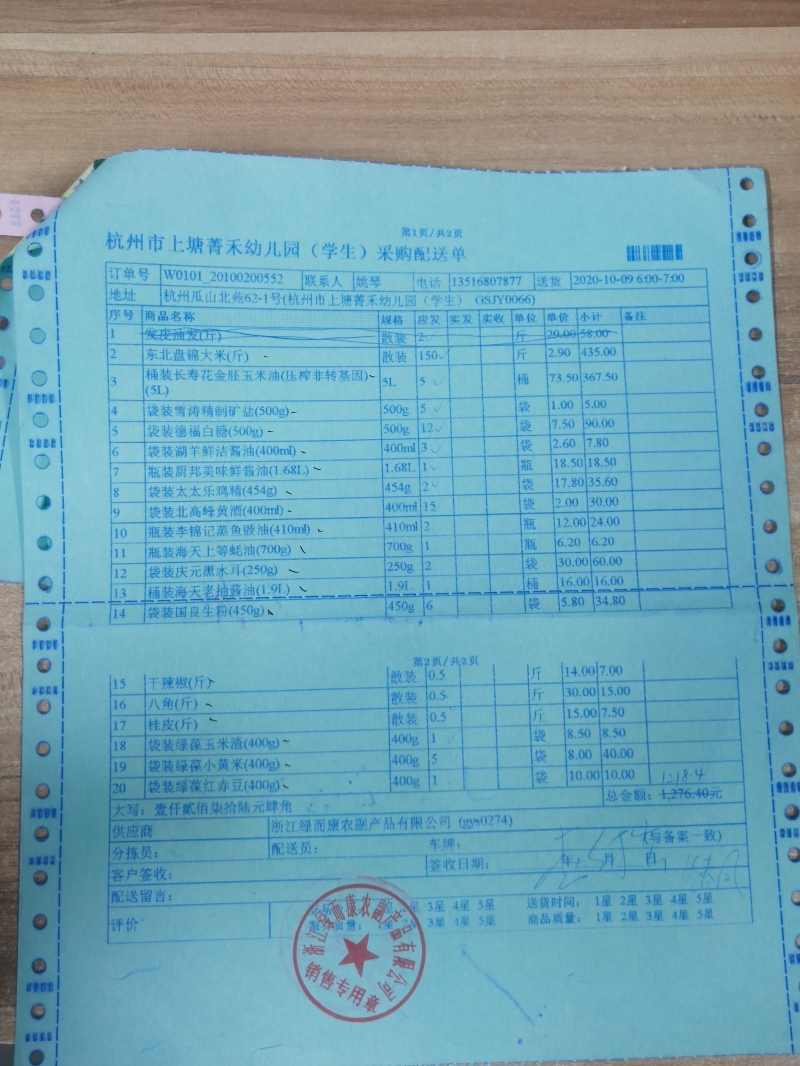 第1页/共2页
杭州市上塘菁禾幼儿园（学生）采购配送单
订单号 W0101_20100200552 联系人 姚琴 电话 13516807877 送货 2020-10-09 6:00-7:00
地址 杭州瓜山北苑62-1号(杭州市上塘菁禾幼儿园（学生） (GSJY0066)
序号 商品名称 规格 应发 实发 实收 单位 单价 小计 备注
1 发皮油发(斤) 散装 2 斤 29.00 58.00
2 东北盘锦大米(斤) 散装 150 斤 2.90 435.00
3 桶装长寿花金胚玉米油(压榨非转基因)(5L) 5L 5 桶 73.50 367.50
4 袋装雪涛精制矿盐(500g) 500g 5 袋 1.00 5.00
5 袋装德福白糖(500g) 500g 12 袋 7.50 90.00
6 袋装湖羊鲜洁酱油(400ml) 400ml 3 袋 2.60 7.80
7 瓶装厨邦美味鲜酱油(1.68L) 1.68L 1 瓶 18.50 18.50
8 袋装太太乐鸡精(454g) 454g 2 袋 17.80 35.60
9 袋装北高峰黄酒(400ml) 400ml 15 袋 2.00 30.00
10 瓶装李锦记蒸鱼豉油(410ml) 410ml 2 瓶 12.00 24.00
11 瓶装海天上等蚝油(700g) 700g 1 瓶 6.20 6.20
12 袋装庆元黑木耳(250g) 250g 2 袋 30.00 60.00
13 桶装海天老抽酱油(1.9L) 1.9L 1 桶 16.00 16.00
14 袋装国良生粉(450g) 450g 6 袋 5.80 34.80
第2页/共2页
15 干辣椒(斤) 散装 0.5 斤 14.00 7.00
16 八角(斤) 散装 0.5 斤 30.00 15.00
17 桂皮(斤) 散装 0.5 斤 15.00 7.50
18 袋装绿葆玉米渣(400g) 400g 1 袋 8.50 8.50
19 袋装绿葆小黄米(400g) 400g 5 袋 8.00 40.00
20 袋装绿葆红赤豆(400g) 400g 1 袋 10.00 10.00
1218.4
大写：壹仟贰佰柒拾陆元肆角 总金额：1,276.40元
供应商 浙江绿而康农副产品有限公司 (gys0274)
分拣员： 配送员： 车牌： (与备案一致)
客户签收： 签收日期： 年 月 日
配送留言：
评价 星 3星 4星 5星 送货时间： 1星 2星 3星 4星 5星
服务质量： 1星 3星 4星 5星 商品质量： 1星 2星 3星 4星 5星
浙江绿而康农副产品有限公司
销售专用章